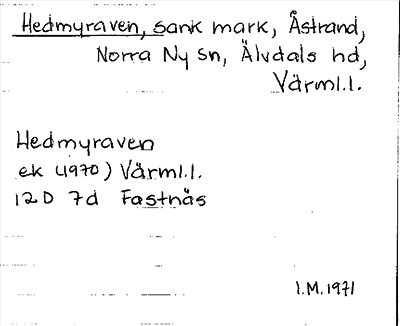 Hedmyraven, sank mark, Åstrand,
Norra Ny sn, Älvdals hd,
Värml.l.
Hedmyraven
ek (1970) Värml.l.
12D 7d Fastnäs
I.M. 1971